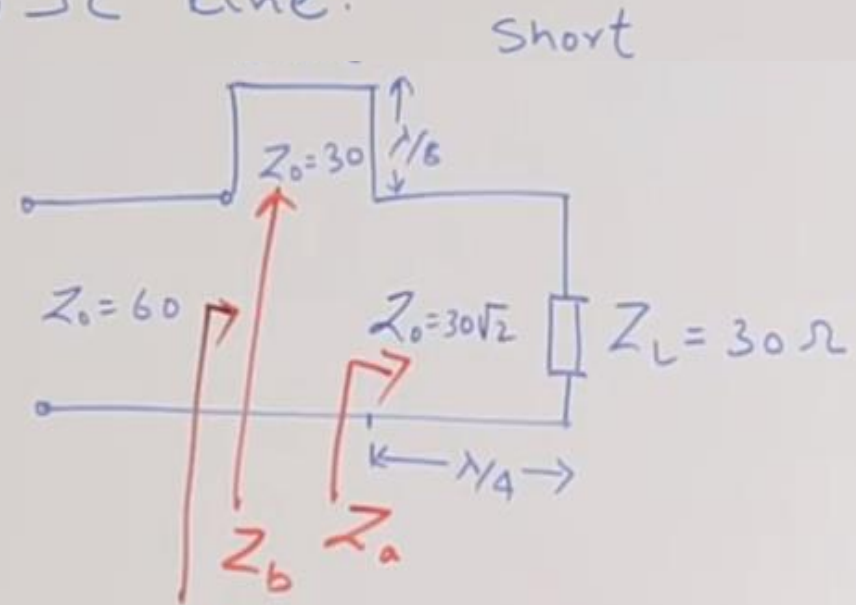 SC Line.
Short
Z₀=30
λ/8
Z₀=60
Z₀=30√2
Z_L=30Ω
λ/4
Z_b
Z_a